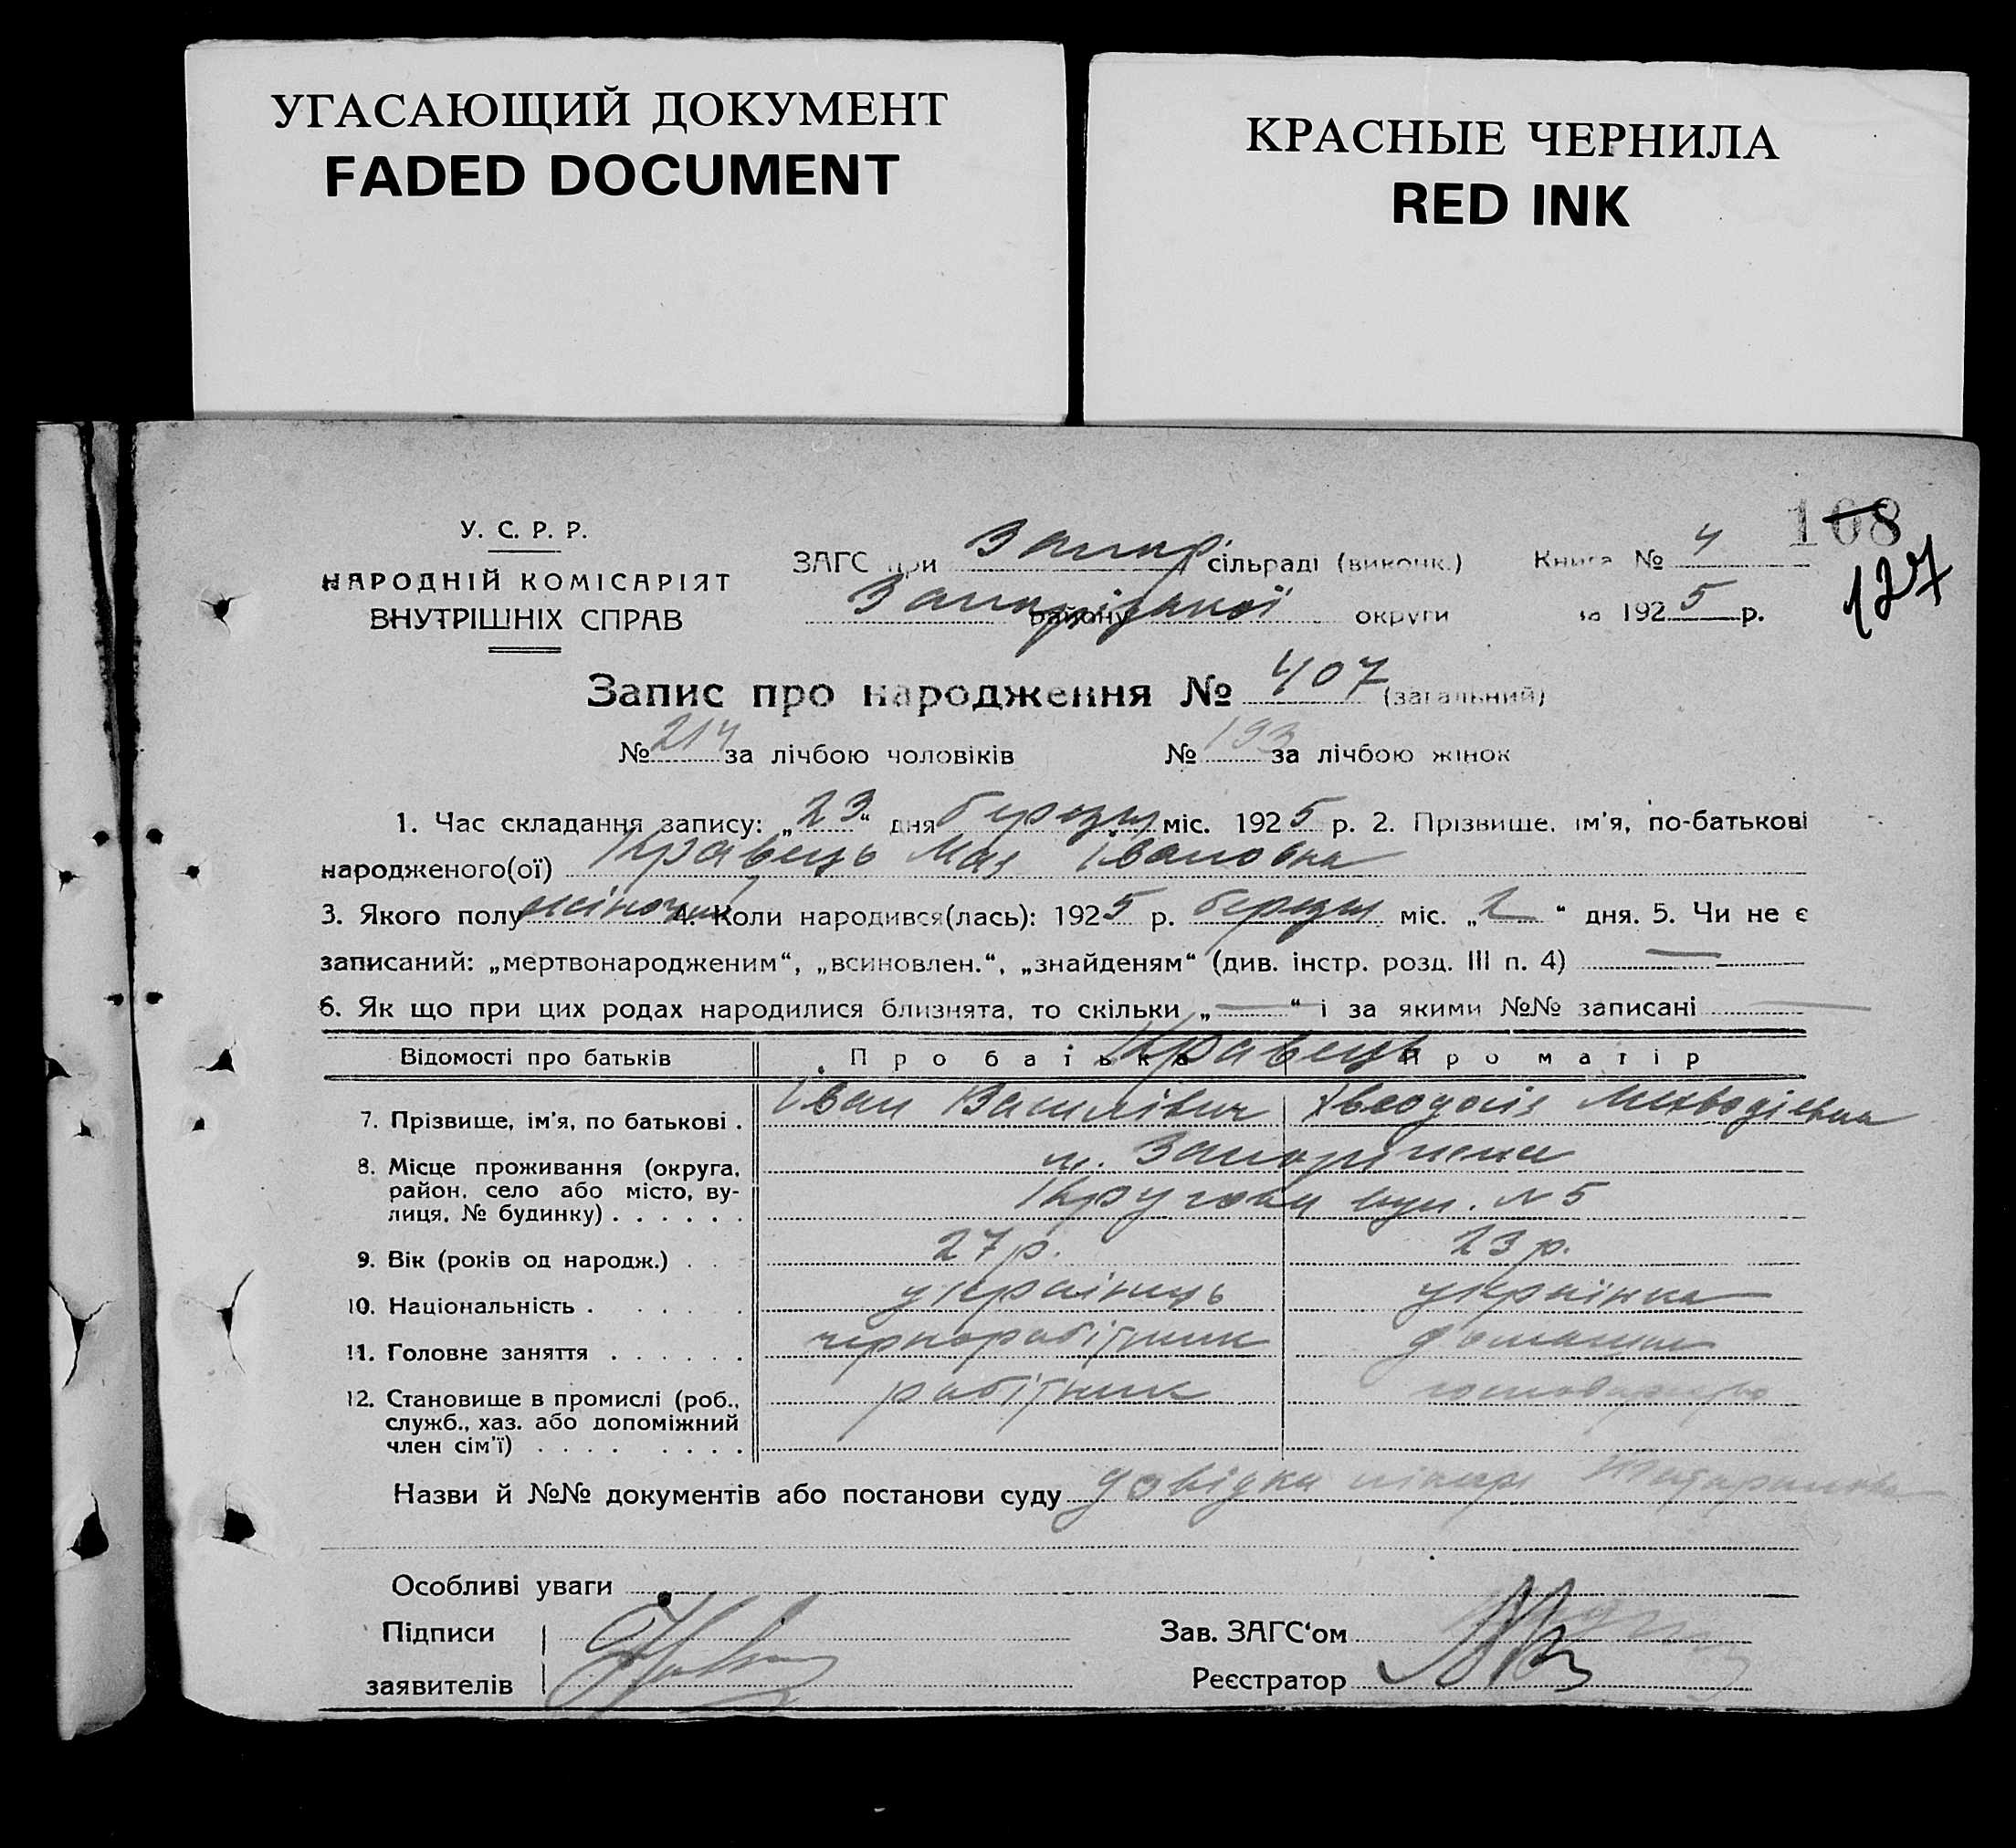 УГАСАЮЩИЙ ДОКУМЕНТ
FADED DOCUMENT
КРАСНЫЕ ЧЕРНИЛА
RED INK
108
127
У. С. Р. Р.
НАРОДНІЙ КОМІСАРІЯТ
ВНУТРІШНІХ СПРАВ
ЗАГС при Запор. сільраді (виконк.) Книга № 4
району Запорізької округи за 1925 р.
Запис про народження № 407 (загальний)
№ 214 за лічбою чоловіків № 193 за лічбою жінок
1. Час складання запису: „23“ дня березня міс. 1925 р. 2. Прізвище, ім'я, по-батькові
народженого(ої) Кравець Мая Івановна
3. Якого полу жіночий 4. Коли народився(лась): 1925 р. березня міс. „2“ дня. 5. Чи не є
записаний: „мертвонародженим“, „всиновлен.“, „знайденям“ (див. інстр. розд. III п. 4) —
6. Як що при цих родах народилися близнята, то скільки „—“ і за якими №№ записані —
Відомості про батьків Про батька Про матір
Кравець
7. Прізвище, ім'я, по батькові . Іван Василівич Хвеодосія Мехводіевна
8. Місце проживання (округа, м. Запоріжжа
район, село або місто, ву-
лиця, № будинку) . . . . . . Кругова вул. № 5
9. Вік (років од народж.) . . . 27 р. 23 р.
10. Національність . . . . . українець українка
11. Головне заняття . . . . . . чорноробітник домашнє
12. Становище в промислі (роб., робітник господарство
служб., хаз. або допоміжний
член сім'ї) . . . . . . . .
Назви й №№ документів або постанови суду довідка лікаря
Особливі уваги
Підписи Зав. ЗАГС'ом
заявителів Реєстратор